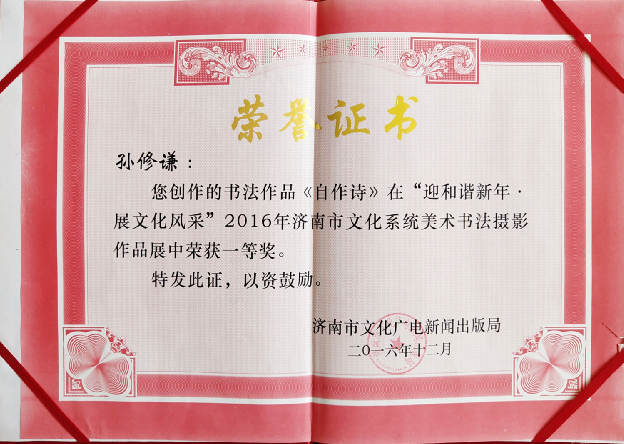 荣誉证书
孙修谦：
您创作的书法作品《自作诗》在“迎和谐新年·
展文化风采”2016年济南市文化系统美术书法摄影
作品展中荣获一等奖。
特发此证，以资鼓励。
济南市文化广电新闻出版局
二〇一六年十二月